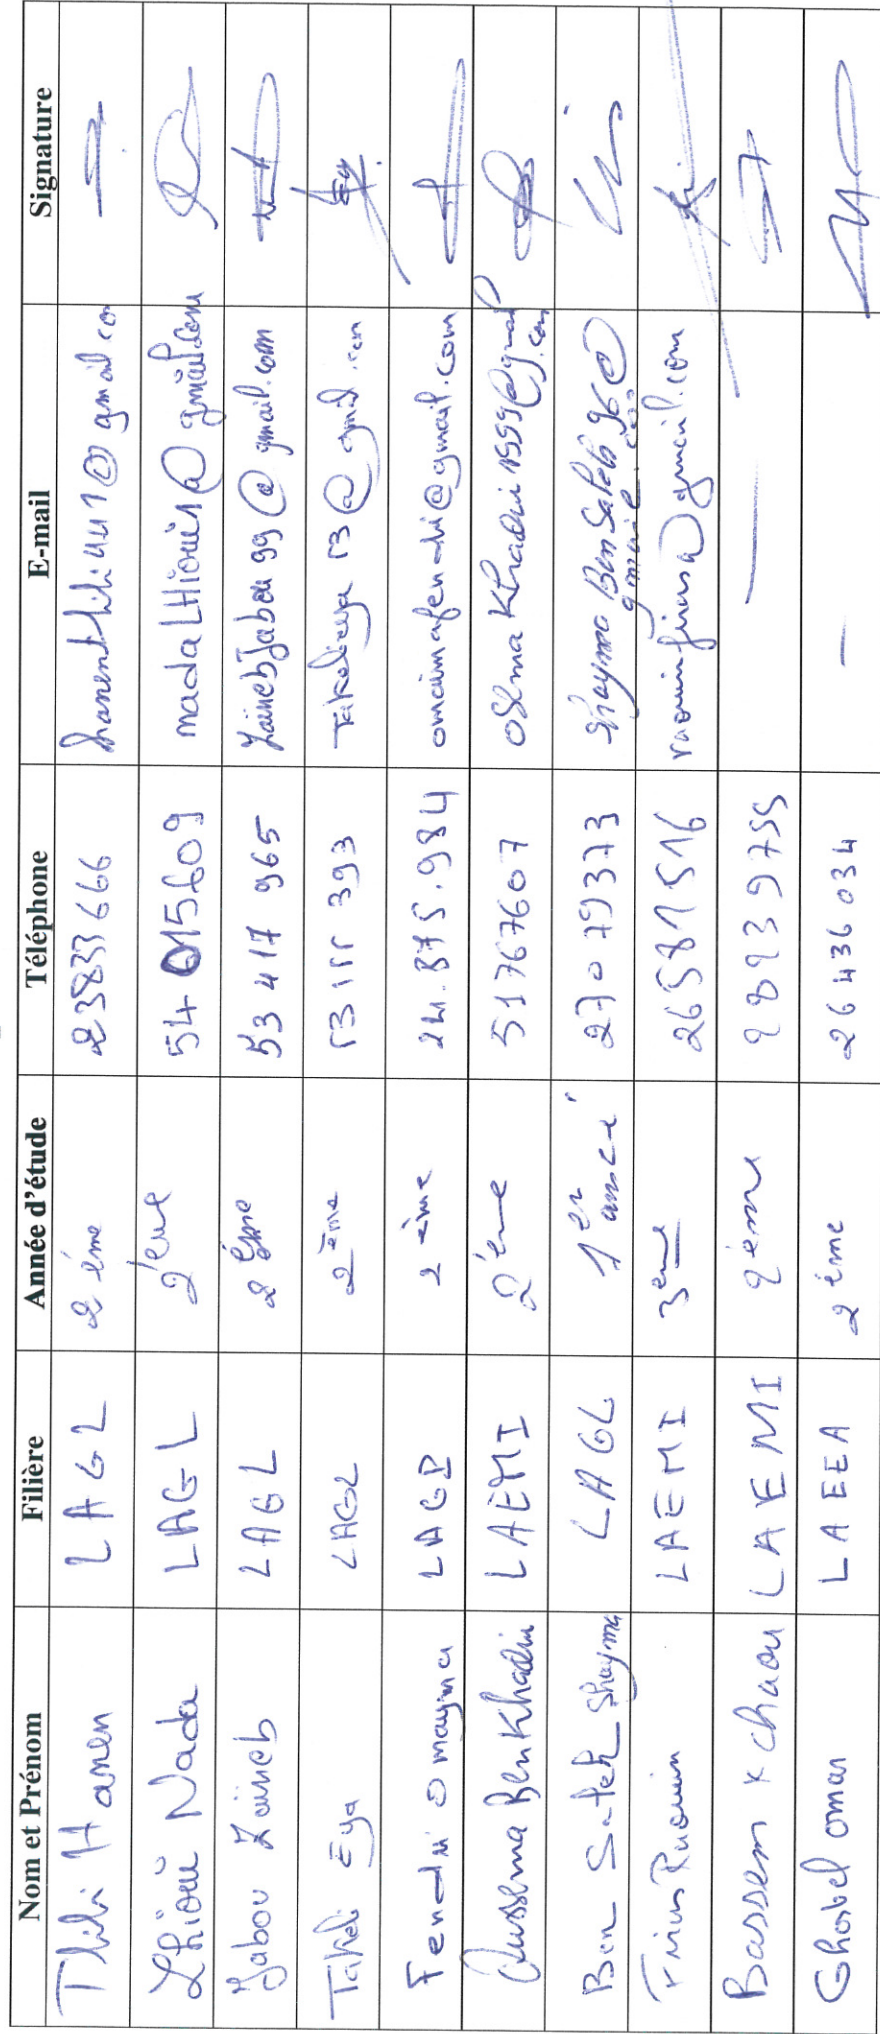 Nom et Prénom Filière Année d'étude Téléphone E-mail Signature
Thlili Hanen LAGL 2ème 23833666
Lhioui Nada LAGL 2ème 54015609 nadaLHioui1@gmail.com
Jabou Zaineb LAGL 2ème 53 417 965 ZainebJabou99@gmail.com
Takali Eya LAGL 2ème 53155393
Fendri Omayma 2ème 24.875.984 omaimafendri@gmail.com
Oussema Ben Khadir LAEMI 2ème 51767607
Ben Saleh Shayma LAGL 1er année 27079373 ShaymaBenSaleh96@
gmail.com
Firas Raouin LAEMI 3eme 26581516 raouinfiras@gmail.com
Bassem Kchaou LAEMI 2ème 28939755 —
Ghorbel omar LAEEA 2ème 26436034 —